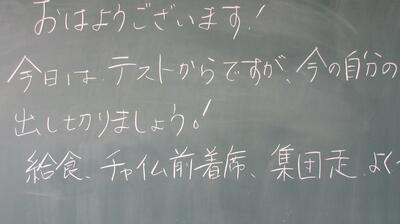 おはようございます!
今日は、テストからですが、今の自分の
出し切りましょう。!
給食、チャイム前着席、集団走、よく